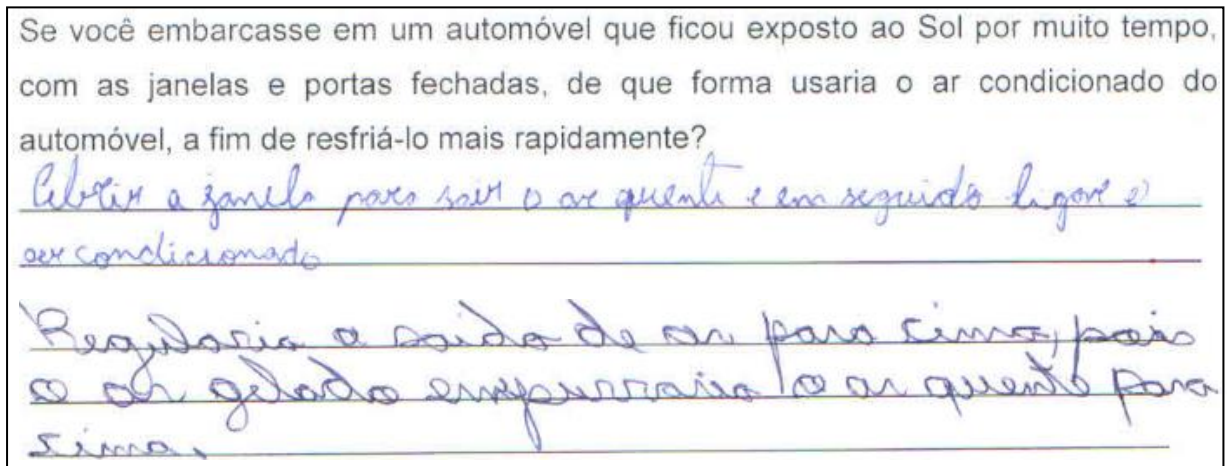 Se você embarcasse em um automóvel que ficou exposto ao Sol por muito tempo,
com as janelas e portas fechadas, de que forma usaria o ar condicionado do
automóvel, a fim de resfriá-lo mais rapidamente?
Abrir a janela para sair o ar quente e em seguida ligar o
ar condicionado
Regularia a saida de ar para cima, pois
o ar gelado empurraria o ar quente para
sima.